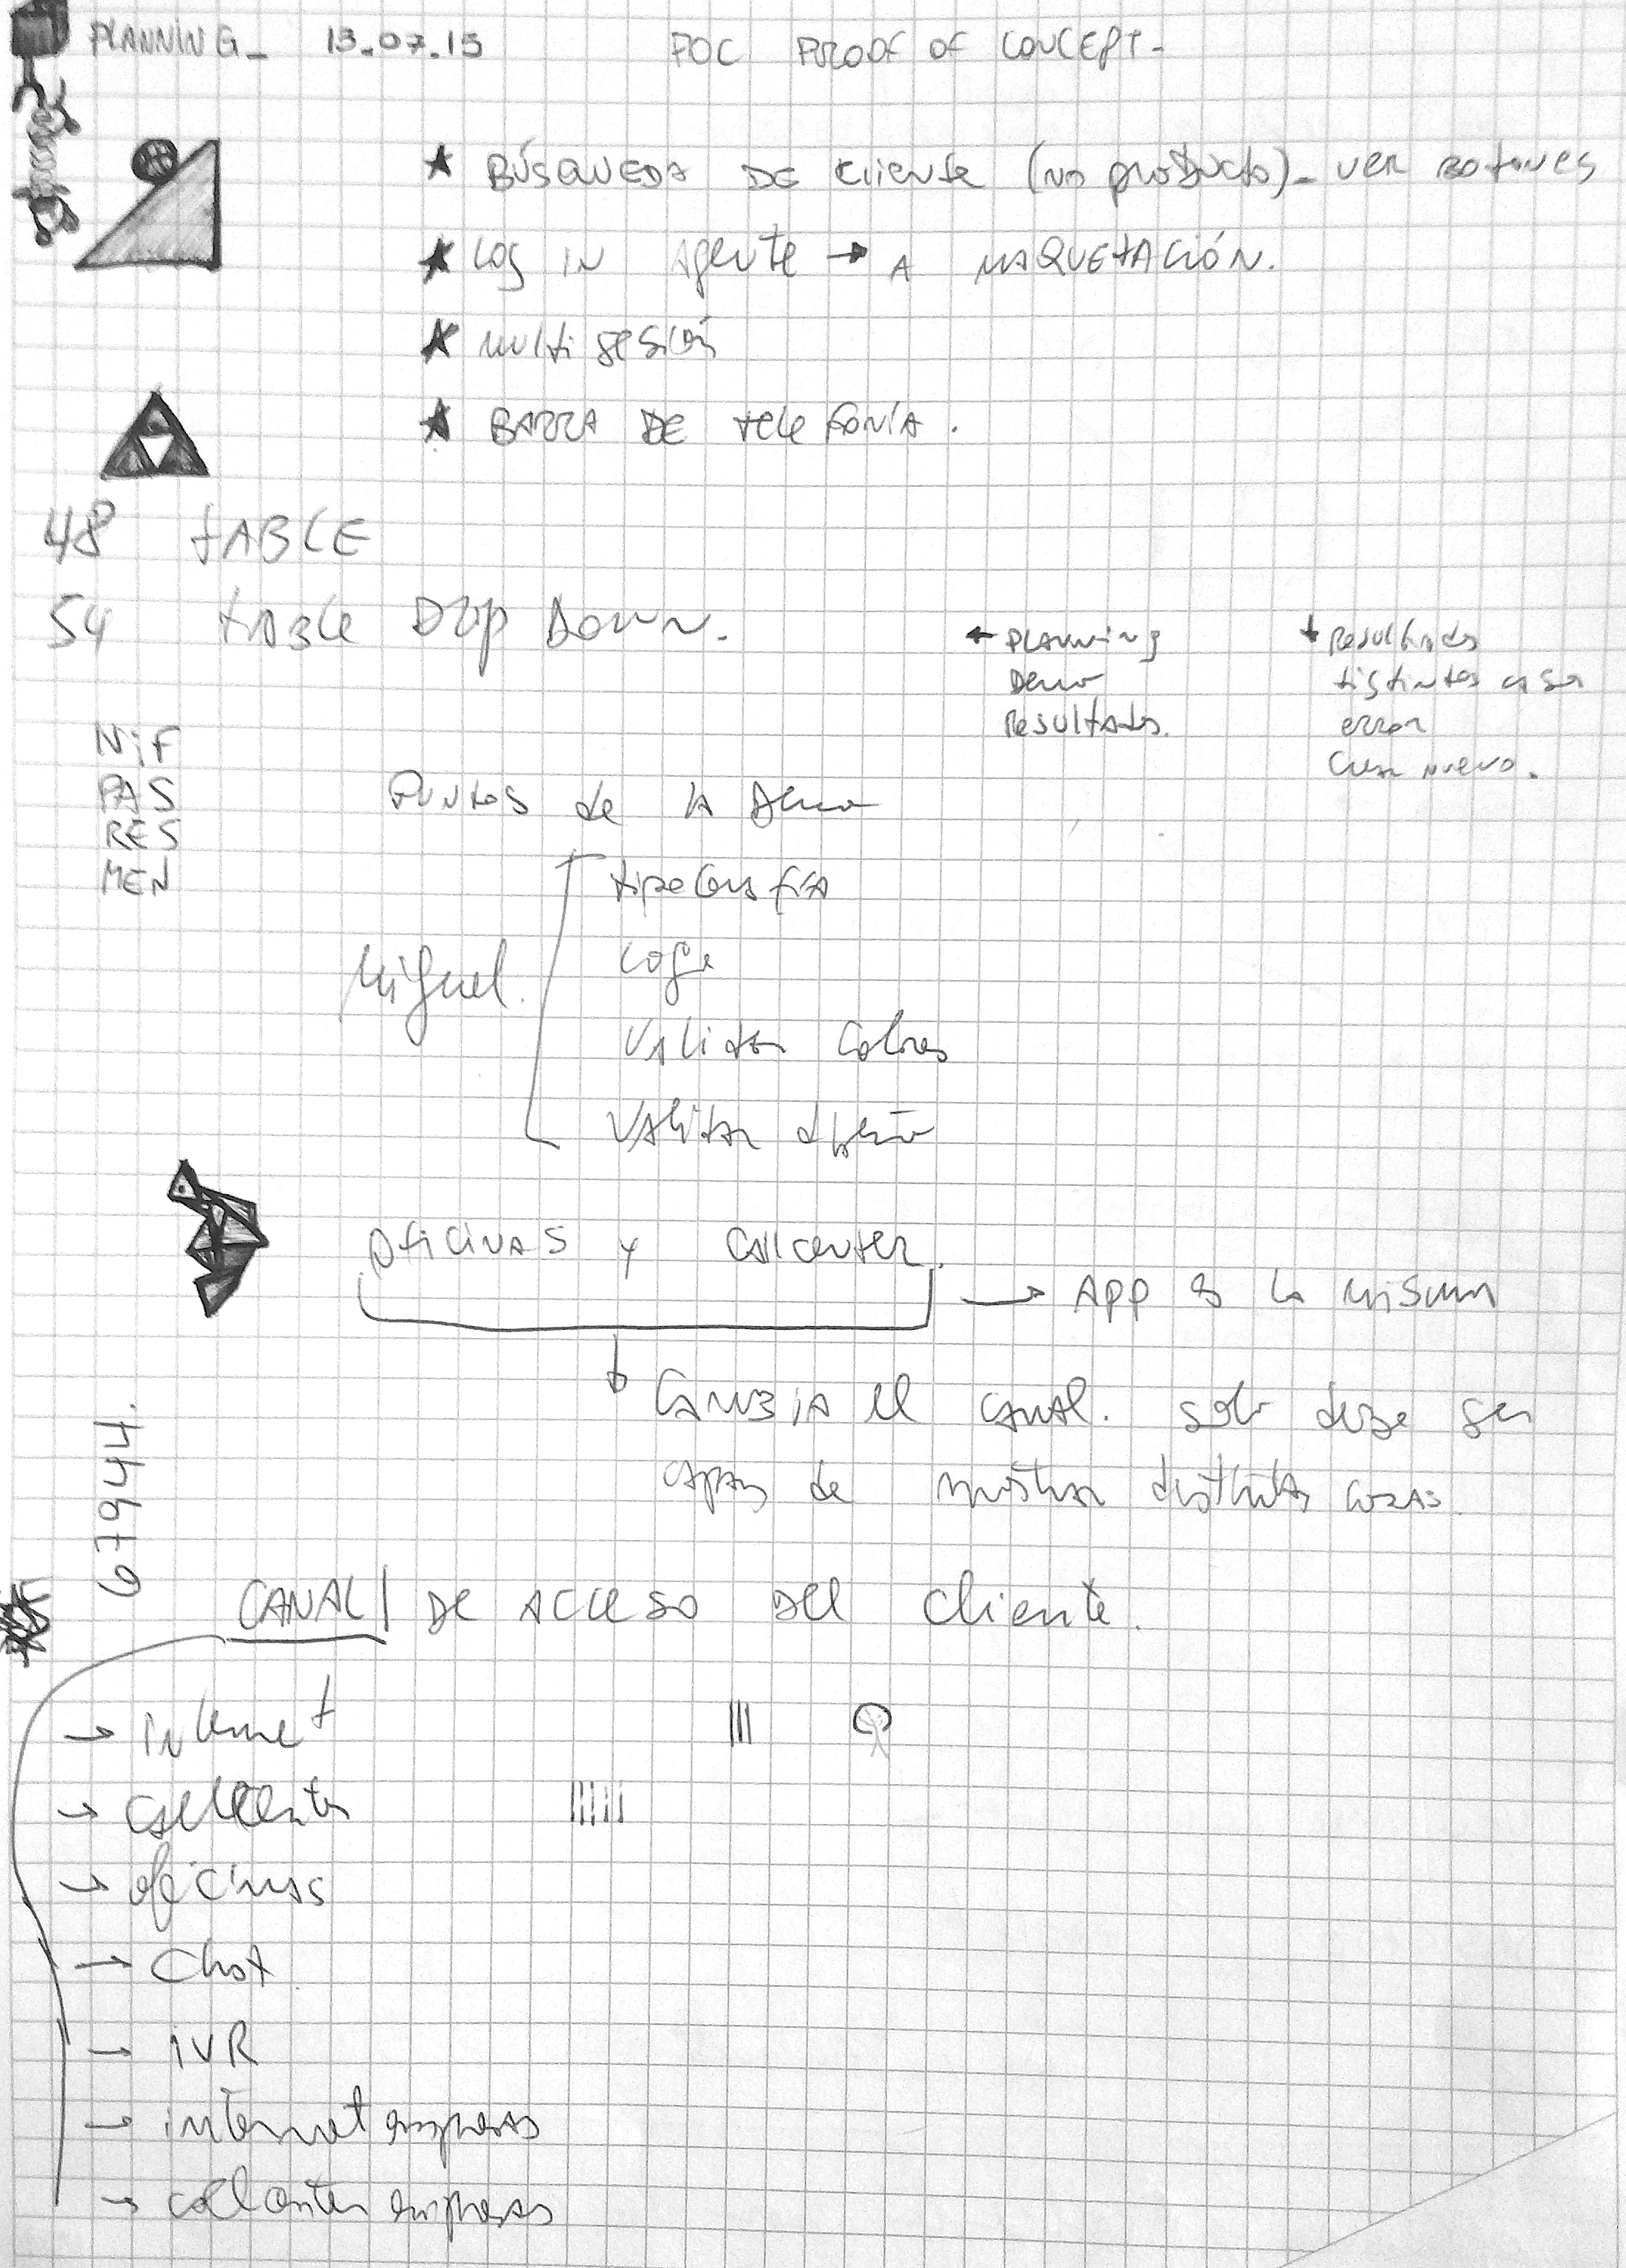 PLANNING_ 13.07.15
POC PROOF OF CONCEPT-
★ BÚSQUEDA DE cliente (no producto)_ ver BOTONES
★ LOG IN Agente → A MAQUETACIÓN.
★ multi sesión
★ BARRA DE telefonía.
48 tABLE
54 table Drop Down.
← Planning
Demo
Resultados.
↓ Resultados
distintos
error
Crear nuevo.
NiF
PAS
RES
MEN
Puntos de la Demo
Miguel.
tipografía
Logo
Validar Colores
Validar diseño
Oficinas y Callcenter.
→ APP es la misma
↓ Cambia el canal. solo debe ser
capaz de mostrar distintas cosas.
67944.
CANAL DE ACCESO DEL cliente.
→ internet
→ callcenter
→ oficinas
→ Chat
→ iVR
→ internet empresas
→ callcenter empresas